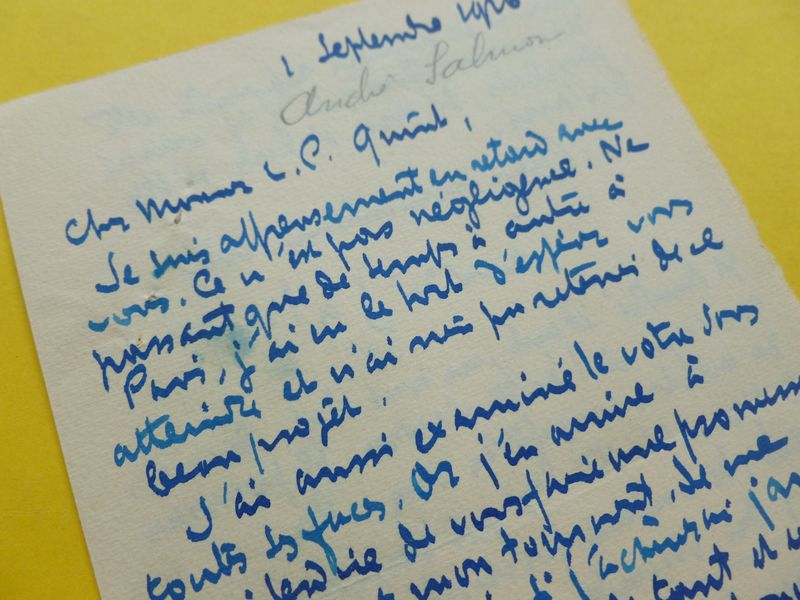 1 Septembre 192
André Salmon
Cher Monsieur L. P. Quint,
Je suis affreusement en retard avec
vous. Ce n'est pas négligence. Ne
passant que de temps à autre à
Paris, j'ai eu le tort d'espérer vous
atteindre et n'ai rien pu retenir de ce
beau projet.
J'ai aussi examiné le votre sous
toutes ses faces. Or j'en arrive à
de vous faire une promesse
mon tourment, de me